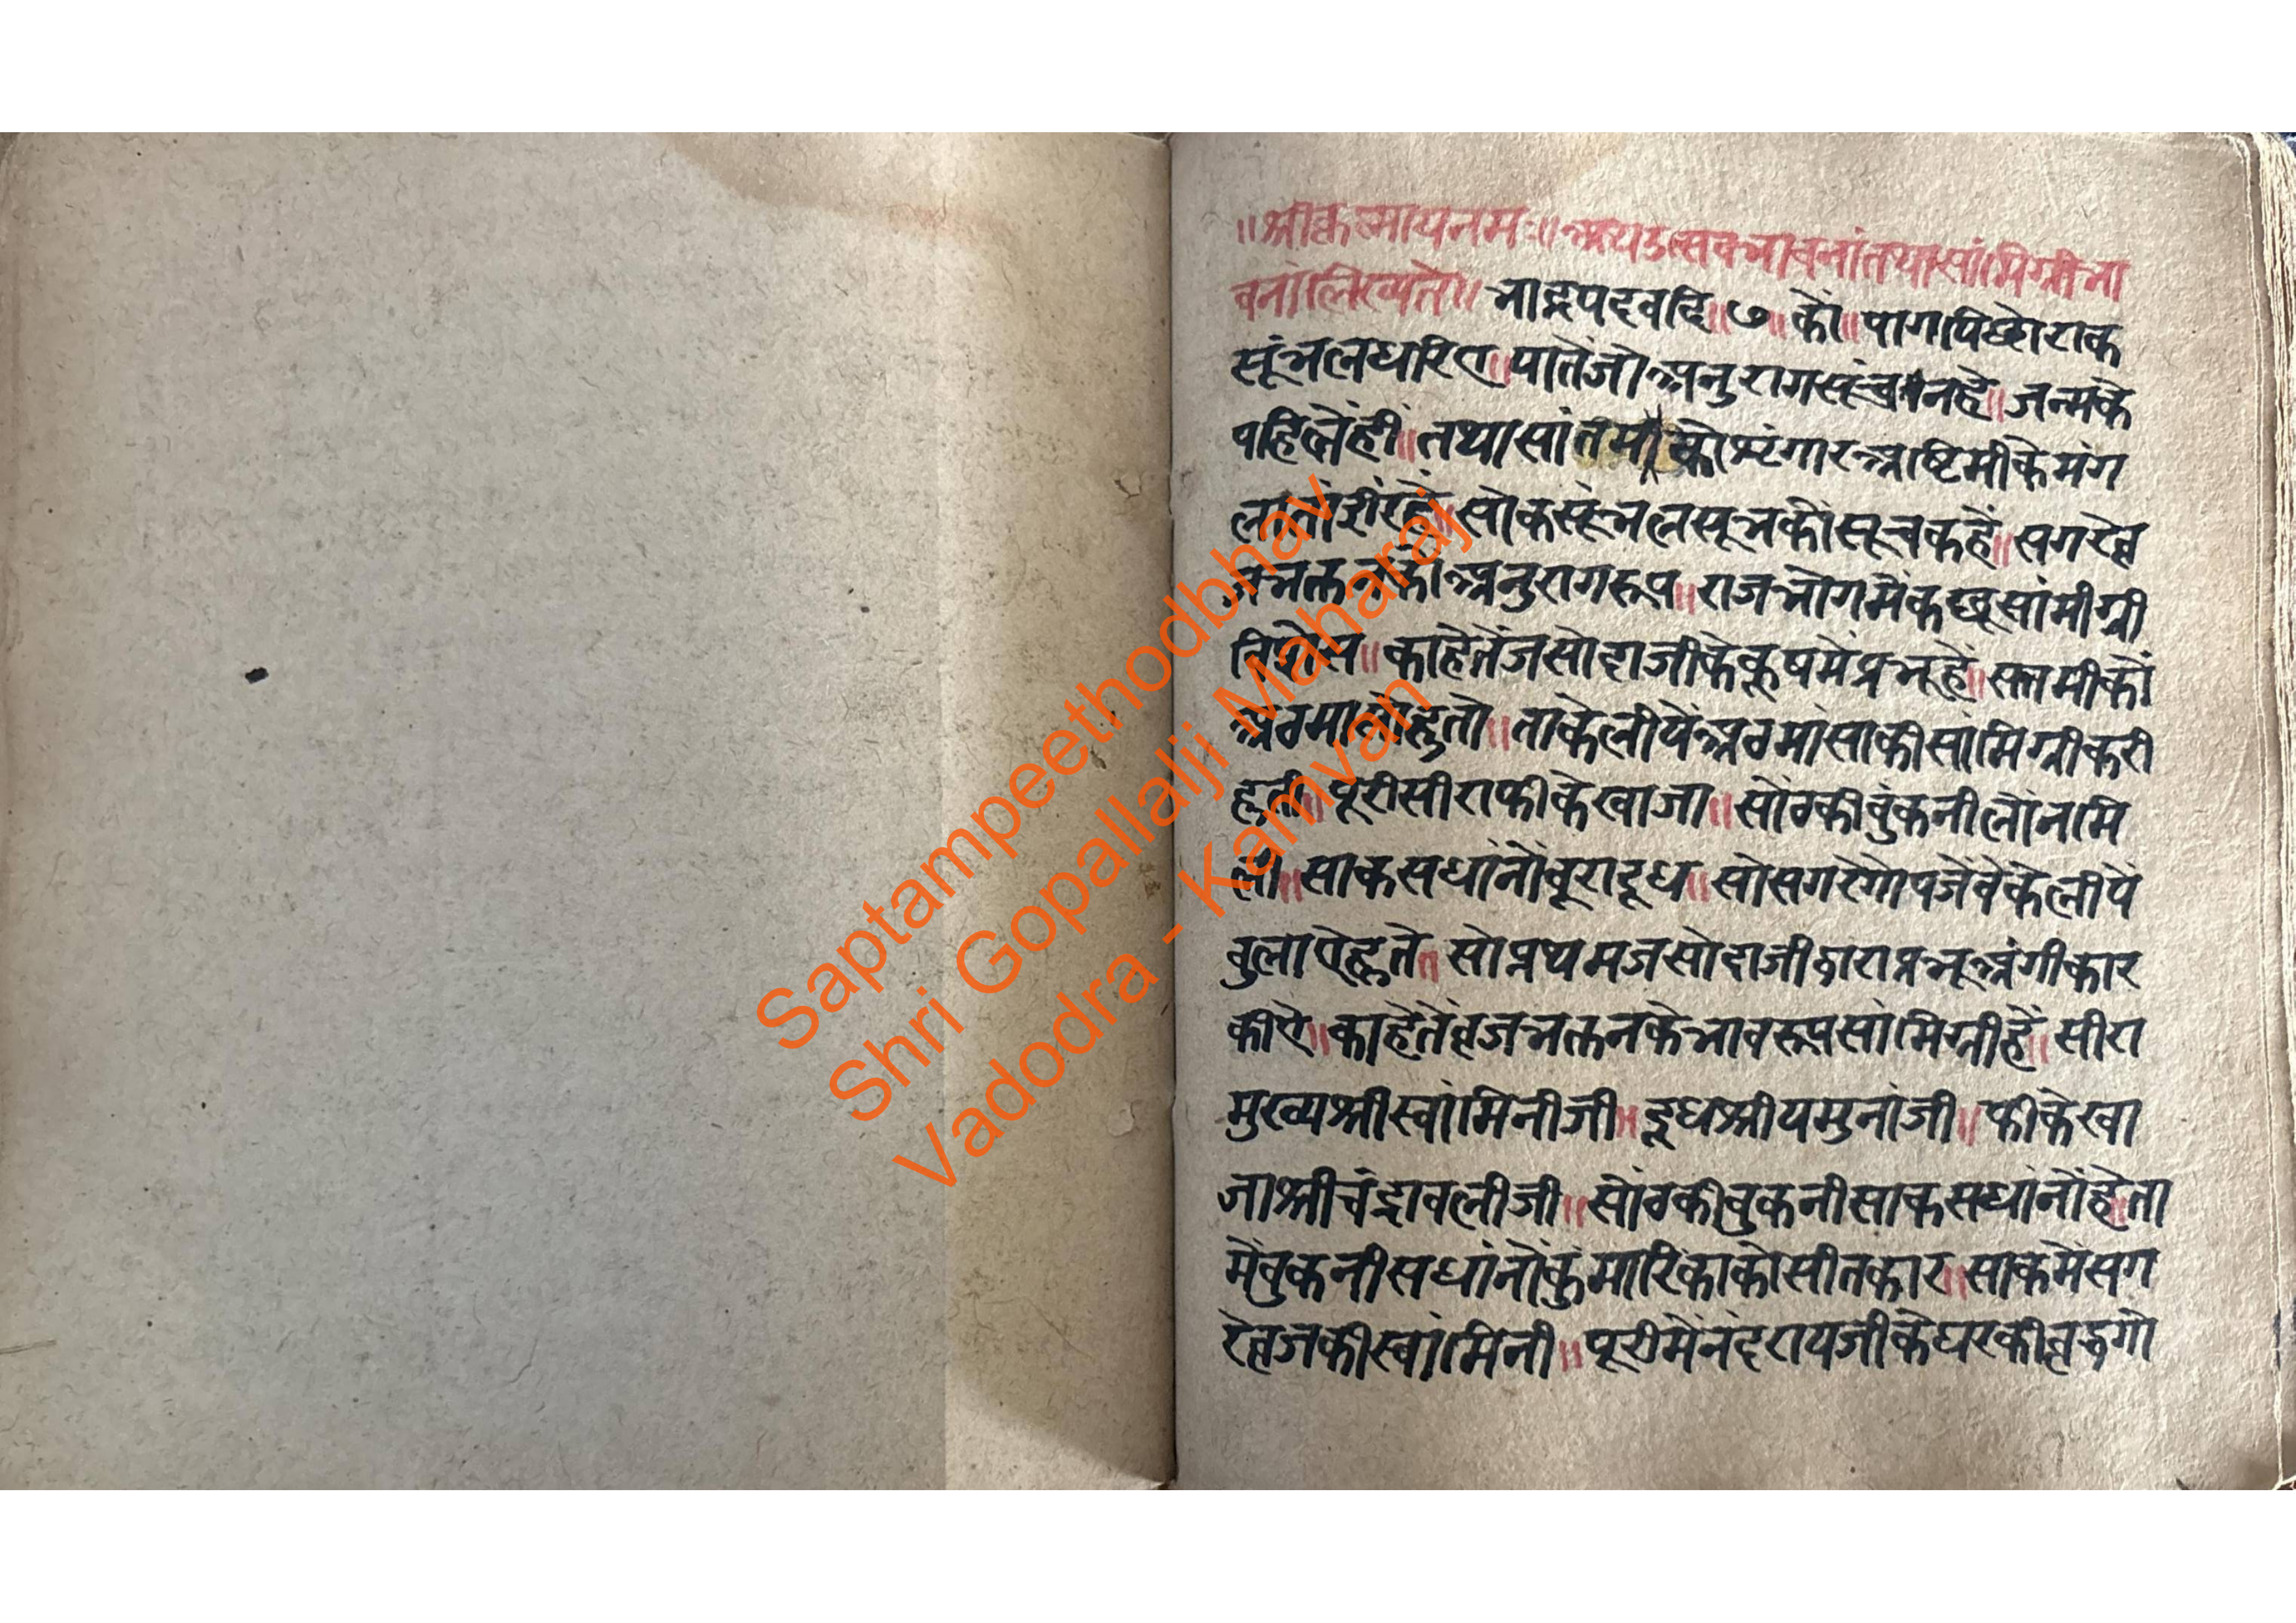 ॥श्रीकृष्णायनमः॥अथउत्सवभावनांतथासांमिग्रीभा
वनांलिख्यते॥भाद्रपदवदि॥७॥कों॥पागपिछोराक
सूंभलधरिए॥यातेंजोअनुरागसूंचनहे॥जन्मके
पहिलेंहीं॥तथासांतमीकोशृंगारअष्टिमीकेमंग
लातांईरहे॥सोकसूंभलसूभकोंसूचकहें॥सगरेव्र
जभक्तनकोअनुरागरूप॥राजभोगमेंकछूसांमीग्री
विशेस॥काहेतेंजसोदाजीकेकूषमेंप्रभूहें॥सप्तमीकों
अठमासोहुतो॥ताकेलीयेंअठमांसाकीसांमिग्रीकरी
हुती॥पूरीसीराफीकेखाजा॥सोंठकीबुंकनीलोंनमि
ली॥साकसधांनोंबूरादूध॥सोसगरेगोपजेंवेकेलीयें
बुलाऐहुते॥सोप्रथमजसोदाजीद्वाराप्रभूअंगीकार
कीऐ॥काहेतेंव्रजभक्तनकेभावरूपसांमिग्रीहें॥सीरा
मुख्यश्रीस्वांमिनीजी॥दूधश्रीयमुनांजी॥फीकेखा
जाश्रीचंद्रावलीजी॥सोंठकीबुकनीसाकसधांनोंहेता
मेंबुकनीसधांनोंकुंमारिकाकोसीतकार॥साकमेंसग
रेव्रजकीस्वांमिनी॥पूरीमेंनंदरायजीकेघरकीवृद्धगो
Saptampeethodbhav
Shri Gopallalji Maharaj
Vadodra - Kamvan